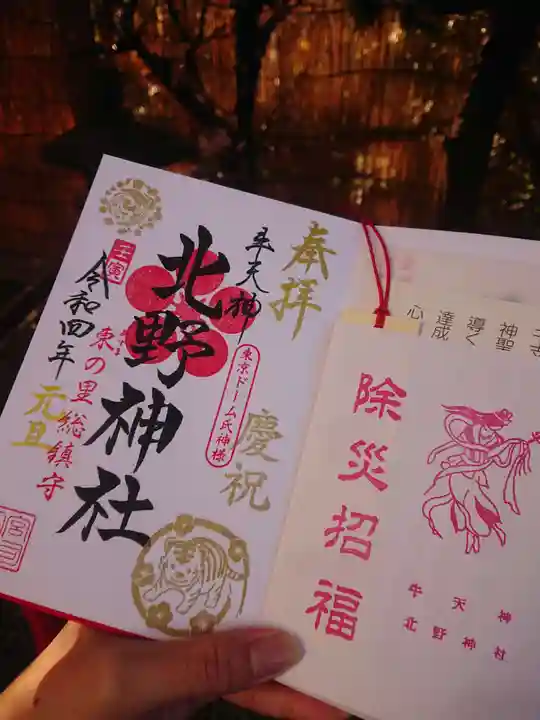 奉拝
慶祝
牛天神
東京ドーム氏神様
北野神社
壬寅
令和四年
元旦
東の里総鎮守
神聖
導く
達成
心
除災招福
牛天神
北野神社